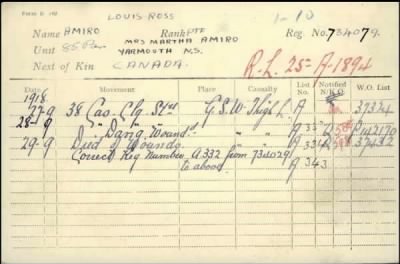 Form B. 103
LOUIS ROSS
1-10
Name AMIRO Rank PTE Reg. No. 734079.
Unit 85 Bn MRS MARTHA AMIRO
YARMOUTH N.S.
Next of Kin CANADA. R.L. 25 A-1894
Date Movement Place Casualty List No. Notified N.K. W.O. List
1918
27-9 38 Cas. Clg. Stn G.S.W. Thigh L. A 37324
28-9 " Dang. Wound. " " A 33
29-9 Died of Wounds. " " A 37432
Correct Reg Number A.332 from 734029 A 343
to above.